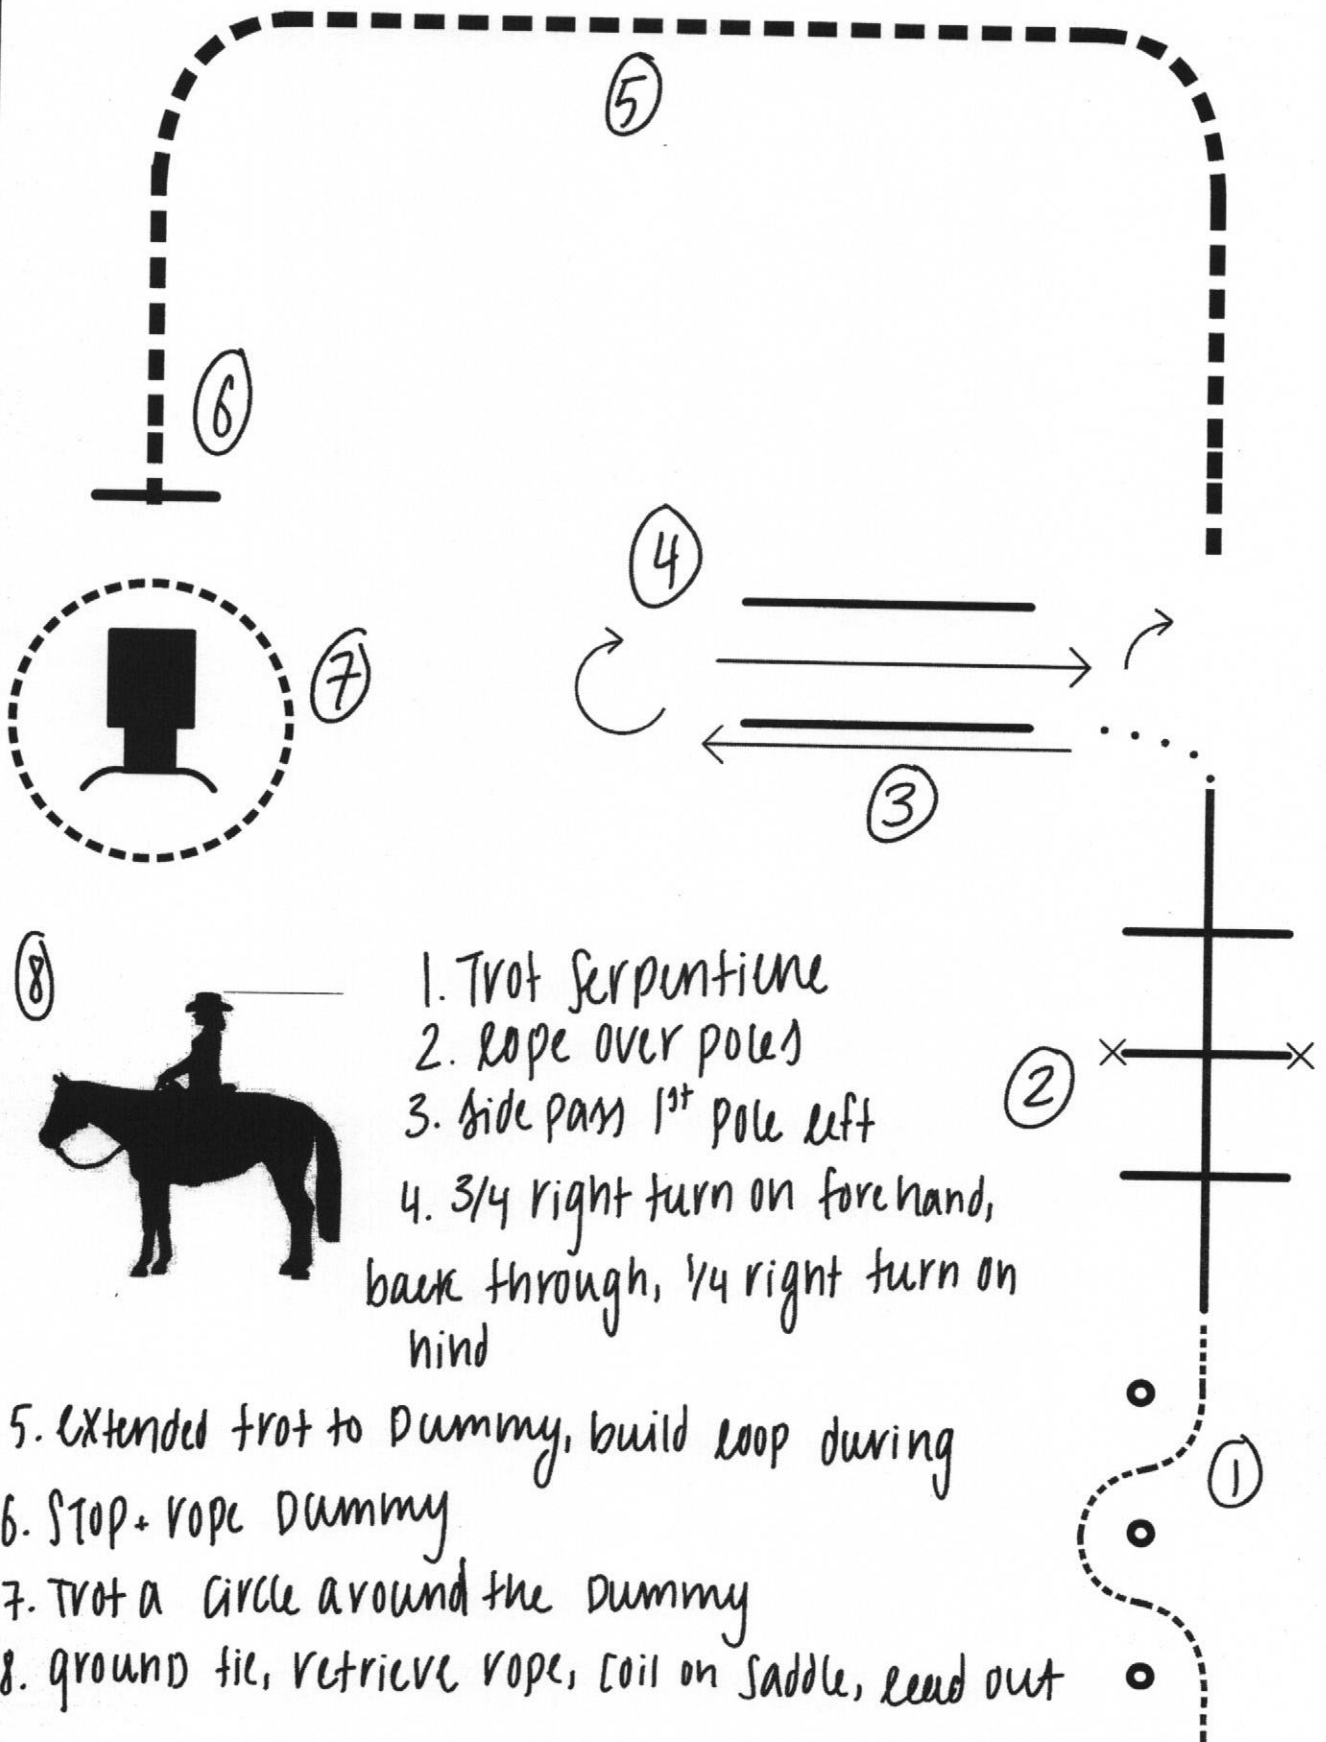 5
6
4
7
3
8
2
1
1. Trot Serpentiene
2. lope over poles
3. side pass 1st pole left
4. 3/4 right turn on forehand,
back through, 1/4 right turn on
hind
5. extended trot to Dummy, build loop during
6. Stop + rope Dummy
7. Trot a circle around the Dummy
8. ground tie, retrieve rope, coil on saddle, lead out